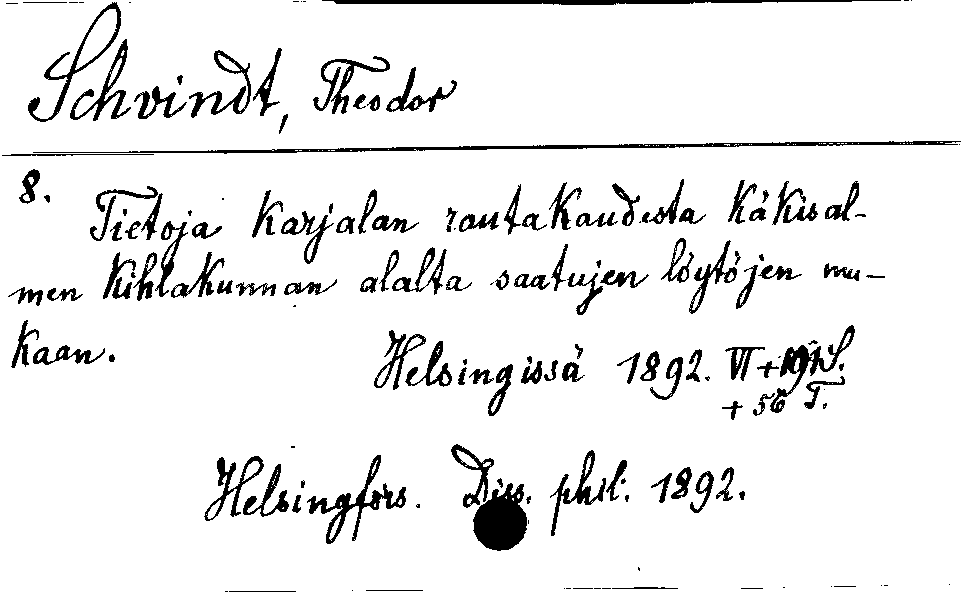 Schvindt, Theodor
8.
Tietoja Karjalan rautakaudesta Käkisal-
men kihlakunnan alalta saatujen löytöjen mu-
kaan.
Helsingissä 1892. VI + S.
+ 56 T.
Helsingfors. Diss. phil. 1892.